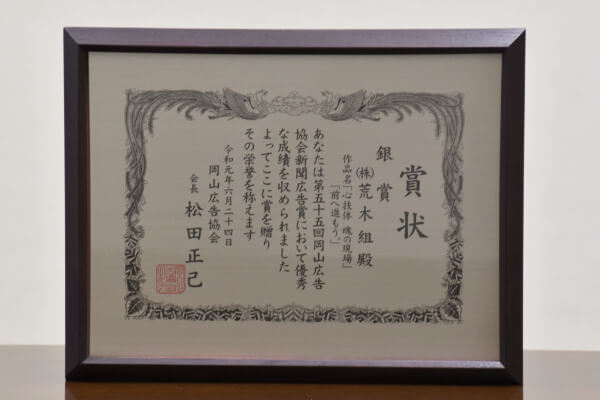 賞状
銀賞
㈱荒木組殿
作品名「心技体 魂の現場」
「前へ進もう。」
あなたは第五十五回岡山広告
協会新聞広告賞において優秀
な成績を収められました
よってここに賞を贈り
その栄誉を称えます
令和元年六月二十四日
岡山広告協会
会長 松田正己